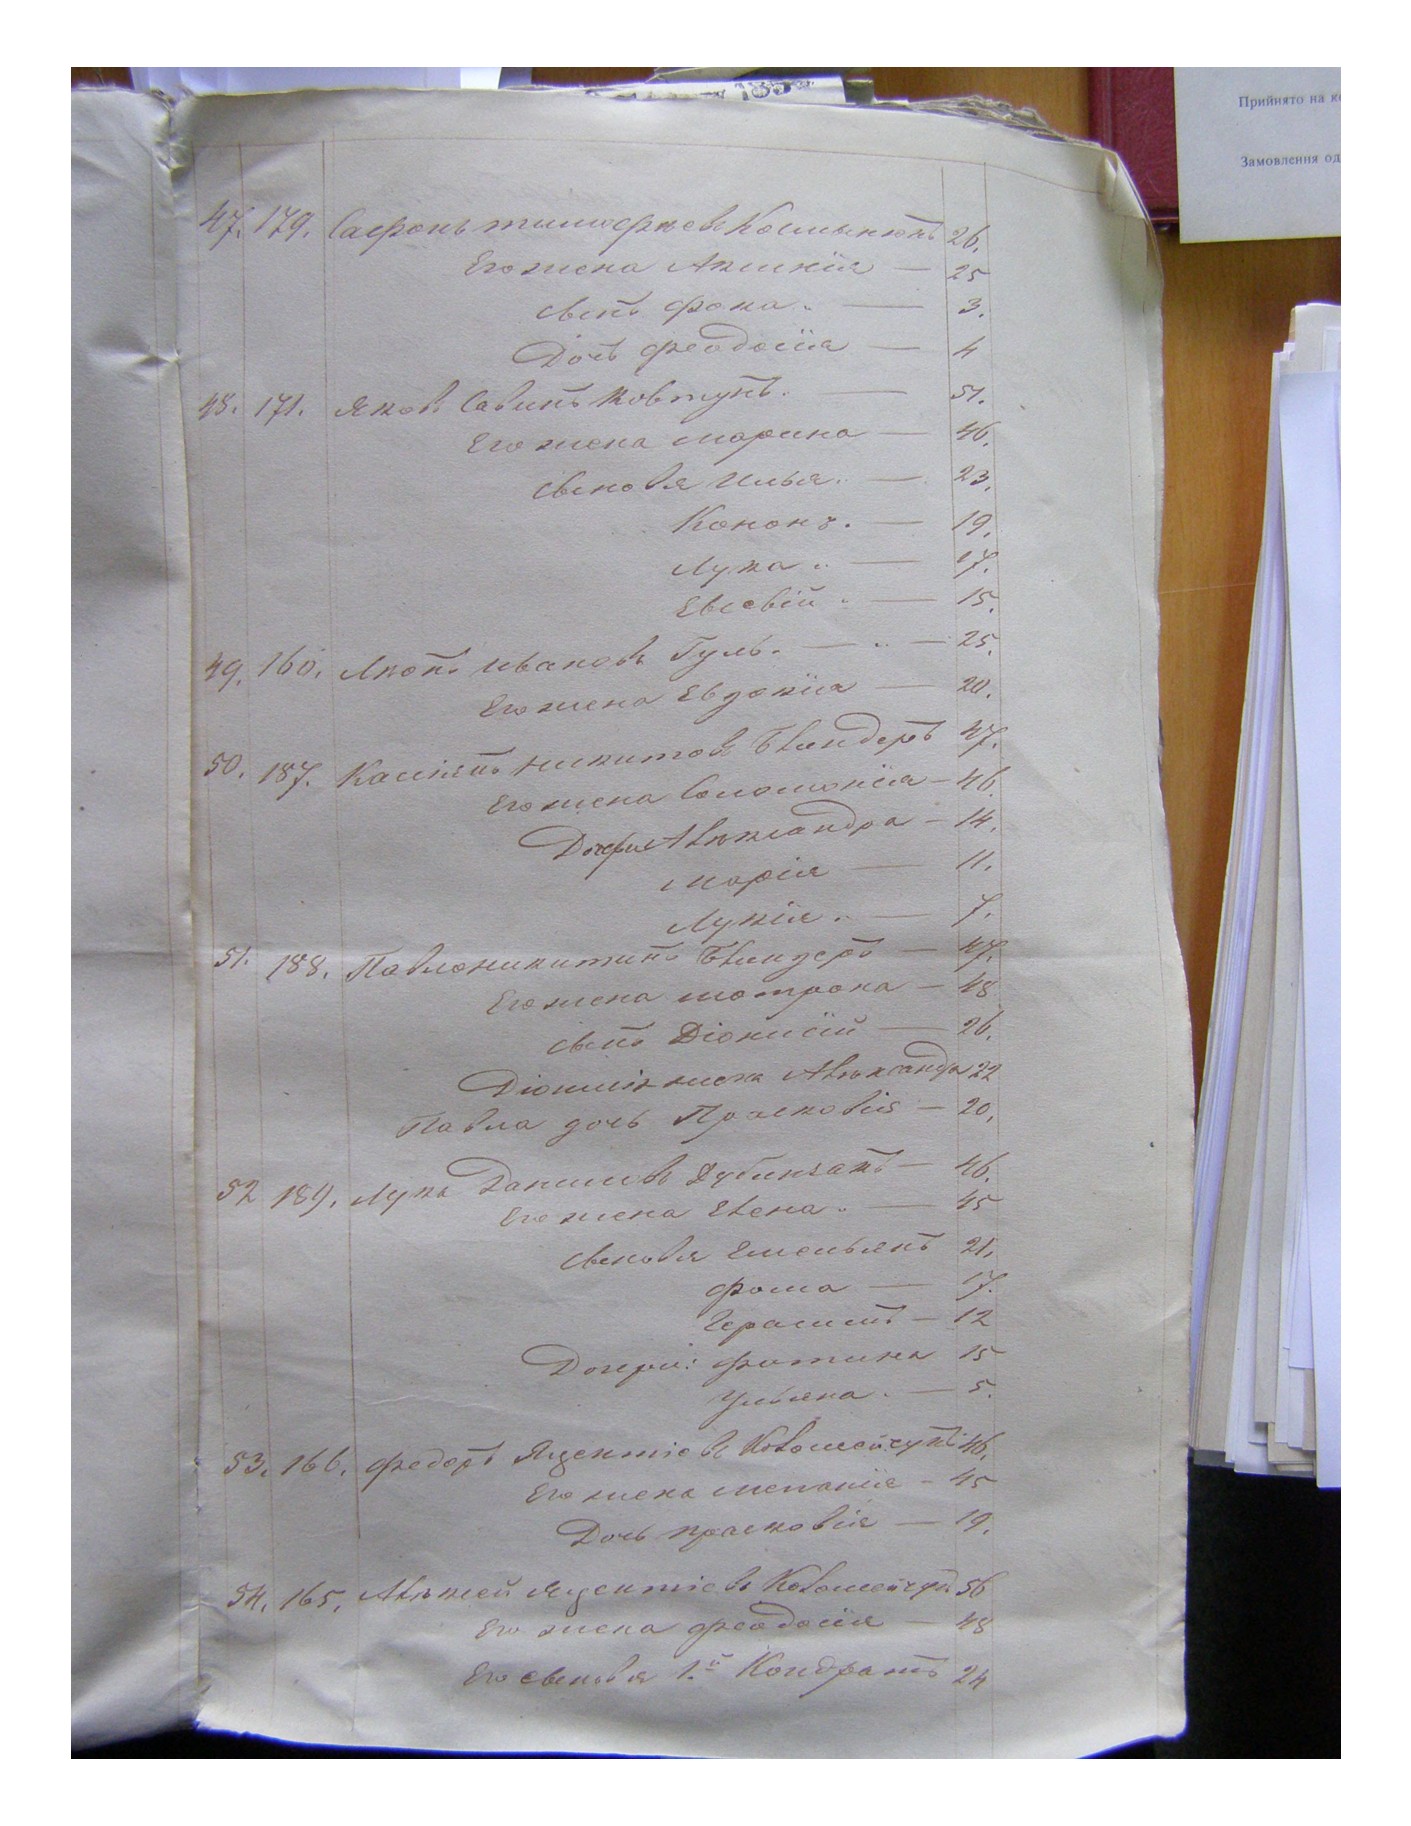 1858
Прийнято на
Замовлення од
47. 179. Сафонъ тимофеевъ 26.
Его жена Аксинія — 25
сынъ фока. — 3.
Дочь феодосія — 4
48. 171. Яковъ Савинъ Ковтунъ. — 51.
Его жена марина — 46.
сыновья илья. — 23.
Кононъ. — 19.
Лука. — 17.
Евсевій. — 15.
49. 160. ивановъ Гуль. — 25.
Его жена Евдокія — 20.
50. 187. Касіянъ никитовъ Блендеръ 47.
Его жена Соломонія — 46.
Дочери Александра — 14.
марія — 11.
Лукія. — 7.
51. 188. Павло никитинъ Блендеръ — 47.
Его жена мотрона — 48
сынъ Діонисій — 26.
жена Александра 22
Павла дочь Прасковія — 20.
52 189. Лука Даниловъ 46.
Его жена Елена. — 45
сыновья Емельянъ 21.
фома — 17.
Герасимъ — 12
Дочери: фотина 15
Ульяна. — 5.
53. 166. федоръ Коломейчукъ 46.
Его жена меланія — 45
Дочь прасковія — 19.
54. 165. Алексей Коломейчукъ 56
Его жена феодосія — 48
Его сыновья 1.й Кондратъ 24